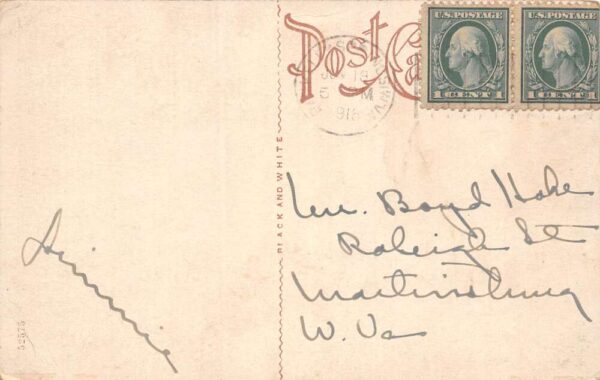 Post Ca
U.S. POSTAGE
1 CENT 1
U.S. POSTAGE
1 CENT 1
918
BLACK AND WHITE
Mr. Boyd Hoke
Raleigh St
Martinsburg
W. Va
Jimmie
52575